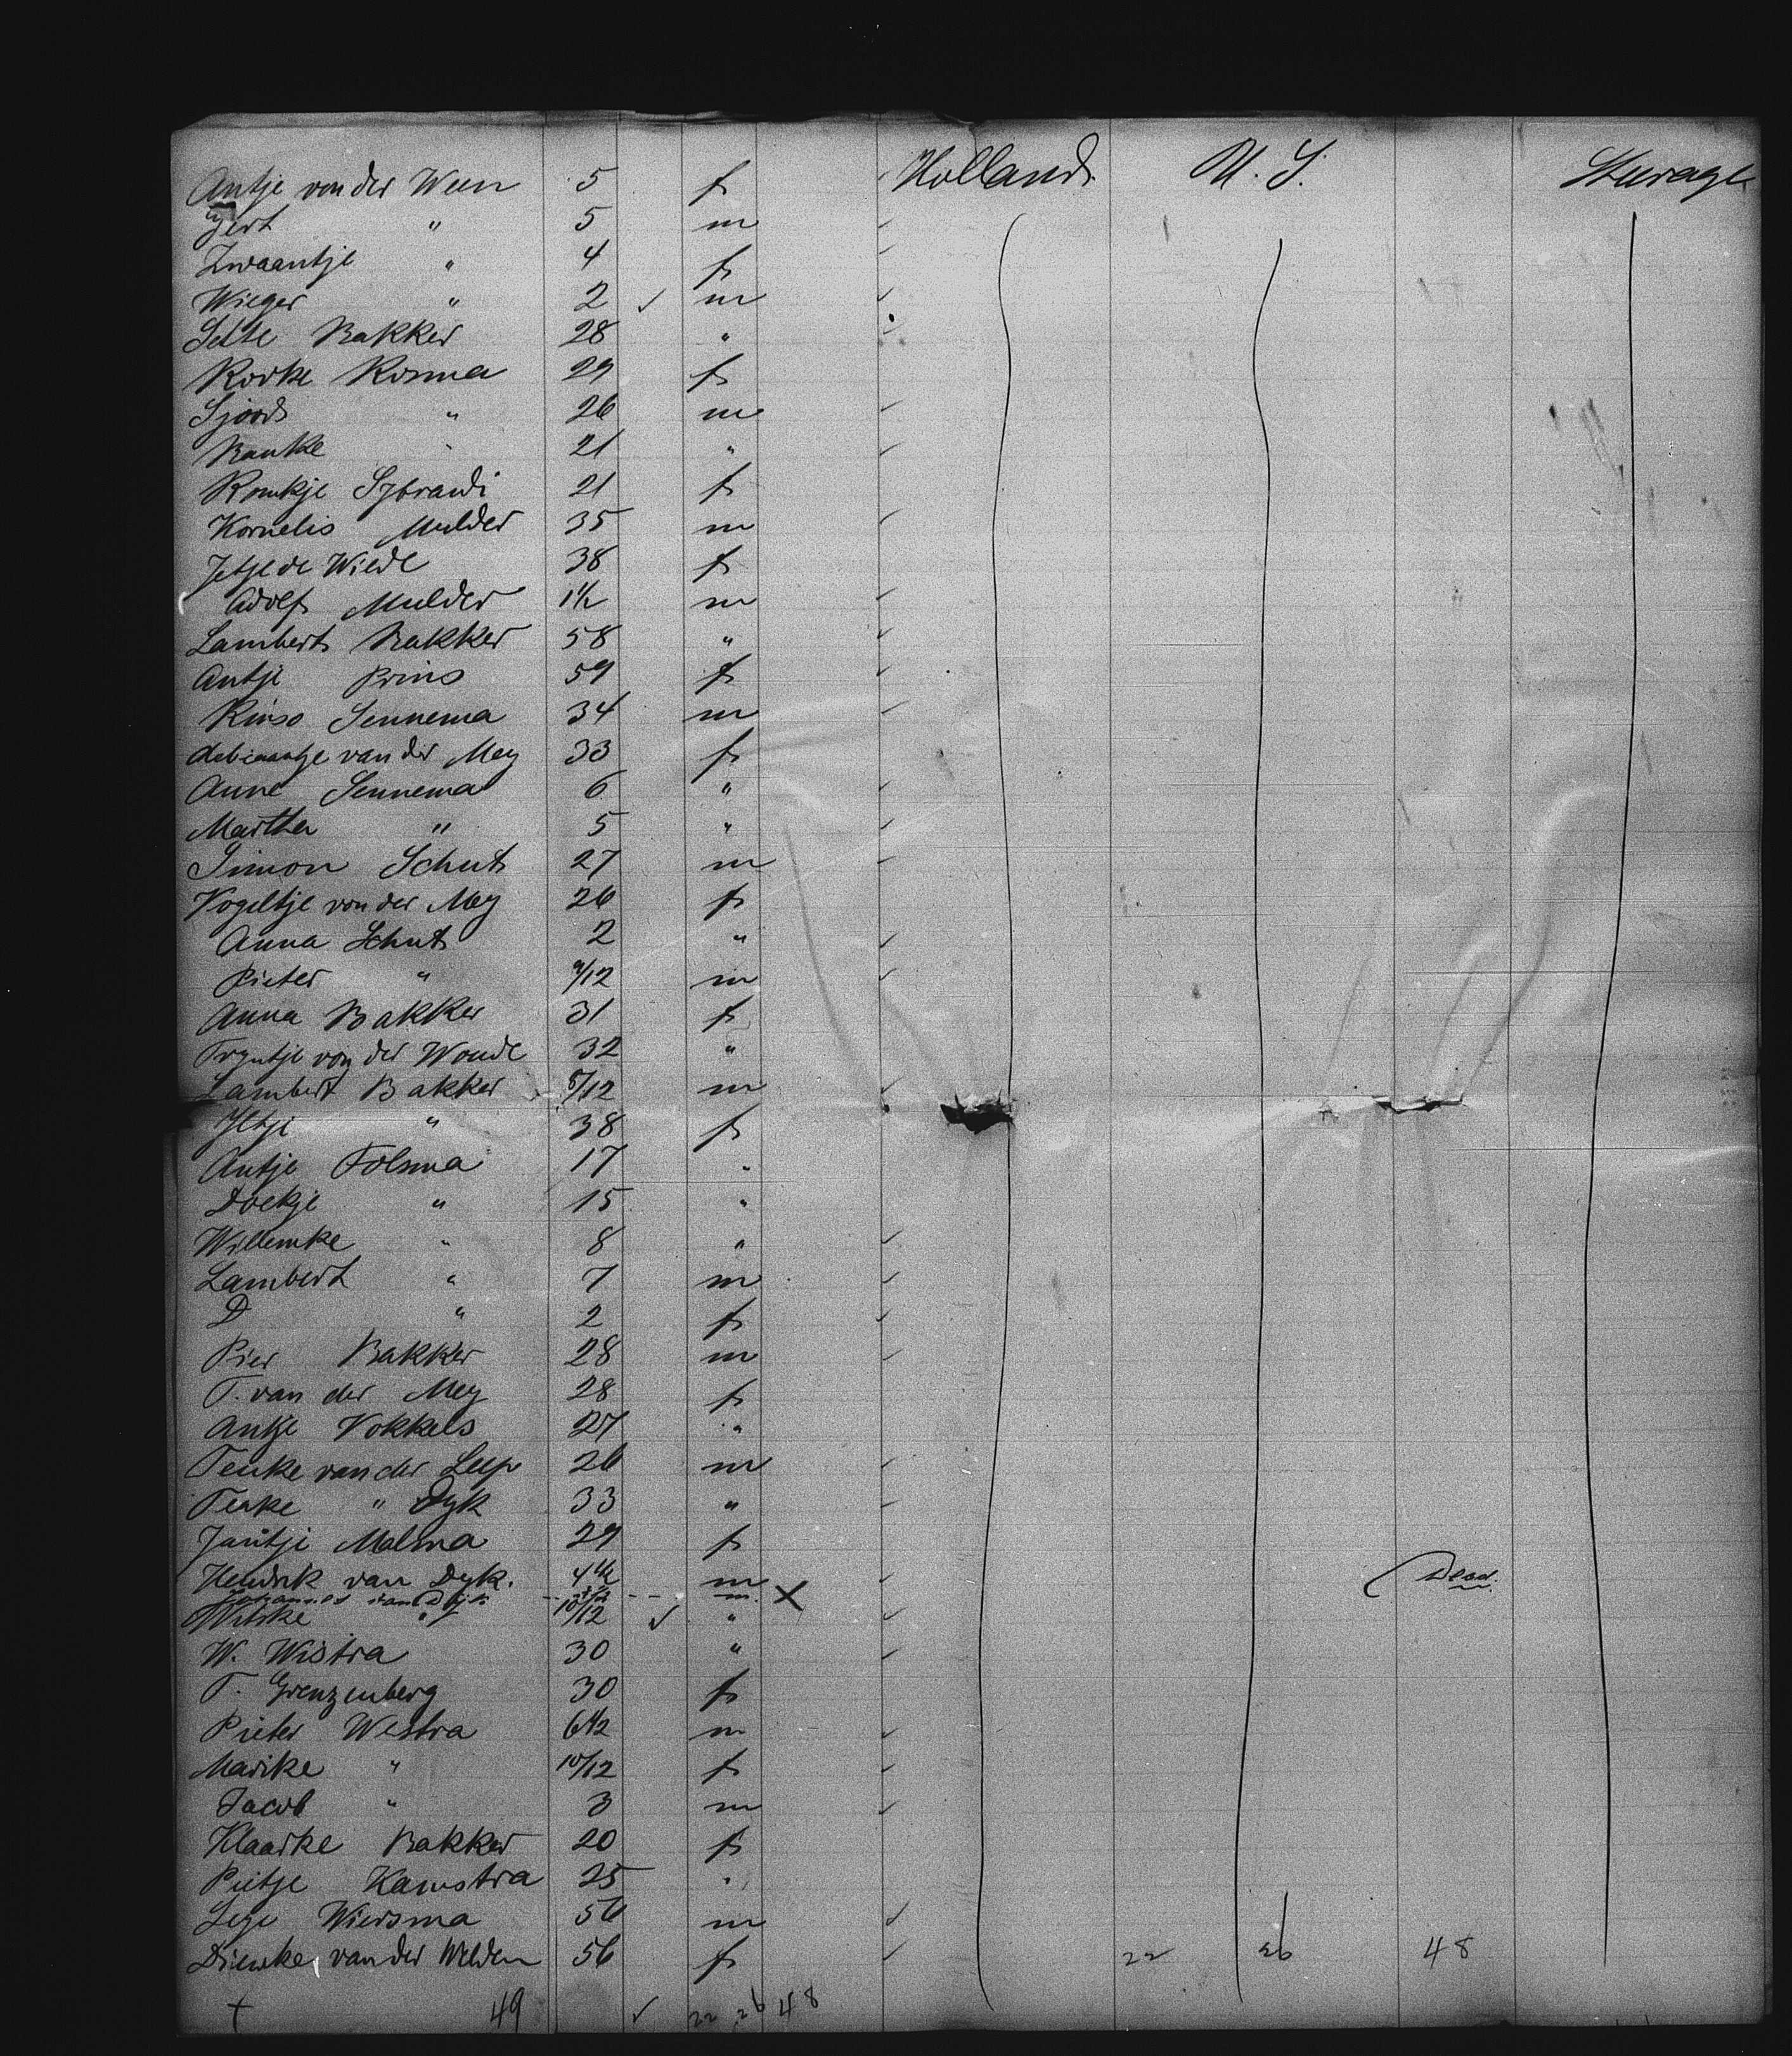 Antje von der Veen 5 f Holland. U. S. Steerage
Gert " 5 m
Zwaantje " 4 f
Wieger " 2 ✓ m
Jelle Bakker 28 "
Rooke Rosma 29 f
Sjoerd " 26 m
Bauke " 21 "
Romkje Sybrandi 21 f
Kornelis Mulder 35 m
Jetje de Wilde 38 f
Adolf Mulder 1½ m
Lambert Bakker 58 "
Antje Prins 59 f
Rinso Sennema 34 m
van der Mey 33 f
Anne Sennema 6 "
Martha " 5 "
Simon Schut 27 m
Vogeltje von der Mey 26 f
Anna Schut 2 "
Pieter " 9/12 m
Anna Bakker 31 f
Tryntje von der Woude 32 "
Lambert Bakker 5/12 m
Yltje " 38 f
Antje Tolsma 17 "
Doekje " 15 "
Willemke " 8 "
Lambert " 7 m
D " 2 f
Pier Bakker 28 m
T. van der Mey 28 f
Antje Vokkels 27 "
Teuke van der Leep 26 m
Teake " Dyk 33 "
Jantje Malma 29 f
Hendrik van Dyk. 4½ m Dead.
Johannes van Dyk m. X
Witske " 10/12 ✓ "
W. Wistra 30 "
T. Grenzenberg 30 f
Pieter Westra 6½ m
Marike " 10/12 f
Jacob " 3 m
Klaaske Bakker 20 f
Pietje Kamstra 25 "
Sije Wiersma 56 m
Dieuke van der Welden 56 f 22 26 48
+ 49 ✓ 22 26 48